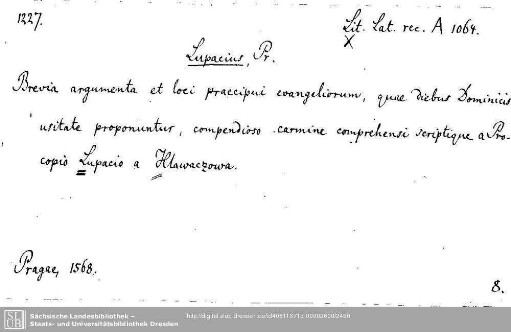 1227.
Lit. Lat. rec. A 1064.
X
Lupacius, Pr.
Brevia argumenta et loci praecipui evangeliorum, quae diebus Dominicis
usitate proponuntur, compendioso carmine comprehensi scriptique a Pro-
copio Lupacio a Hlawaczowa.
Pragae, 1568.
8.
SLUB
Sächsische Landesbibliothek –
Staats- und Universitätsbibliothek Dresden